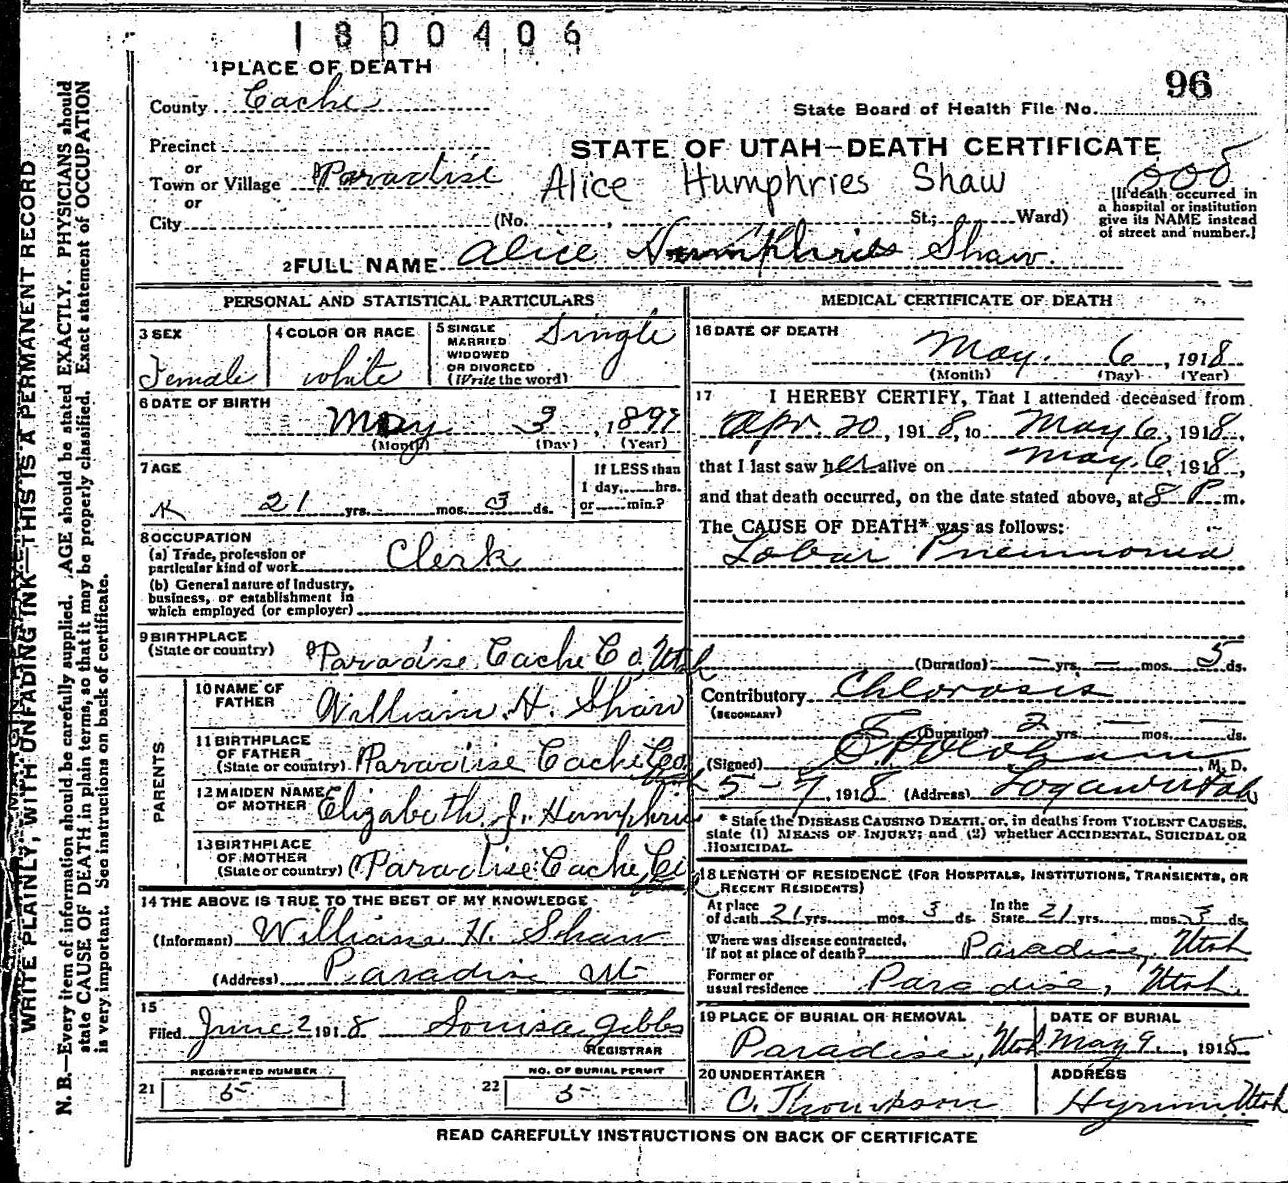 1800406
1 PLACE OF DEATH
96
County Cache
State Board of Health File No.
Precinct
STATE OF UTAH—DEATH CERTIFICATE
or
Town or Village Paradise
Alice Humphries Shaw
005
or
City (No. , St.; Ward)
[If death occurred in
a hospital or institution
give its NAME instead
of street and number.]
2 FULL NAME Alice Humphries Shaw.
PERSONAL AND STATISTICAL PARTICULARS
3 SEX
Female
4 COLOR OR RACE
white
5 SINGLE
MARRIED
WIDOWED
OR DIVORCED
(Write the word)
Single
6 DATE OF BIRTH
May 3, 1897
(Month) (Day) (Year)
7 AGE
21 yrs. mos. 3 ds.
If LESS than
1 day, hrs.
or min.?
8 OCCUPATION
(a) Trade, profession or
particular kind of work Clerk
(b) General nature of Industry,
business, or establishment in
which employed (or employer)
9 BIRTHPLACE
(State or country) Paradise Cache Co, Utah
PARENTS
10 NAME OF
FATHER William H. Shaw
11 BIRTHPLACE
OF FATHER
(State or country) Paradise Cache Co.
12 MAIDEN NAME
OF MOTHER Elizabeth J. Humphries
13 BIRTHPLACE
OF MOTHER
(State or country) Paradise Cache Co
14 THE ABOVE IS TRUE TO THE BEST OF MY KNOWLEDGE
(Informant) William H. Shaw
(Address) Paradise Ut
15
Filed June 2 1918 Louisa Gibbs
REGISTRAR
REGISTERED NUMBER
21 5
NO. OF BURIAL PERMIT
22 5
MEDICAL CERTIFICATE OF DEATH
16 DATE OF DEATH
May. 6, 1918
(Month) (Day) (Year)
17 I HEREBY CERTIFY, That I attended deceased from
Apr. 20, 1918, to May 6, 1918,
that I last saw her alive on May. 6, 1918,
and that death occurred, on the date stated above, at 8 P m.
The CAUSE OF DEATH* was as follows:
Lobar Pneumonia
(Duration) — yrs. — mos. 5 ds.
Contributory Chlorosis
(SECONDARY)
(Duration) 2 yrs. — mos. — ds.
(Signed) , M. D.
5-7, 1918 (Address) Logan Utah
* State the DISEASE CAUSING DEATH, or, in deaths from VIOLENT CAUSES,
state (1) MEANS OF INJURY; and (2) whether ACCIDENTAL, SUICIDAL OR
HOMICIDAL.
18 LENGTH OF RESIDENCE (FOR HOSPITALS, INSTITUTIONS, TRANSIENTS, OR
RECENT RESIDENTS)
At place
of death 21 yrs. mos. 3 ds.
In the
State 21 yrs. mos. 3 ds.
Where was disease contracted,
if not at place of death? Paradise, Utah
Former or
usual residence Paradise, Utah.
19 PLACE OF BURIAL OR REMOVAL
Paradise, Utah
DATE OF BURIAL
May 9, 1918
20 UNDERTAKER
C. Thompson
ADDRESS
Hyrum, Utah
READ CAREFULLY INSTRUCTIONS ON BACK OF CERTIFICATE
WRITE PLAINLY, WITH UNFADING INK—THIS IS A PERMANENT RECORD
N. B.—Every item of information should be carefully supplied. AGE should be stated EXACTLY. PHYSICIANS should
state CAUSE OF DEATH in plain terms, so that it may be properly classified. Exact statement of OCCUPATION
is very important. See instructions on back of certificate.